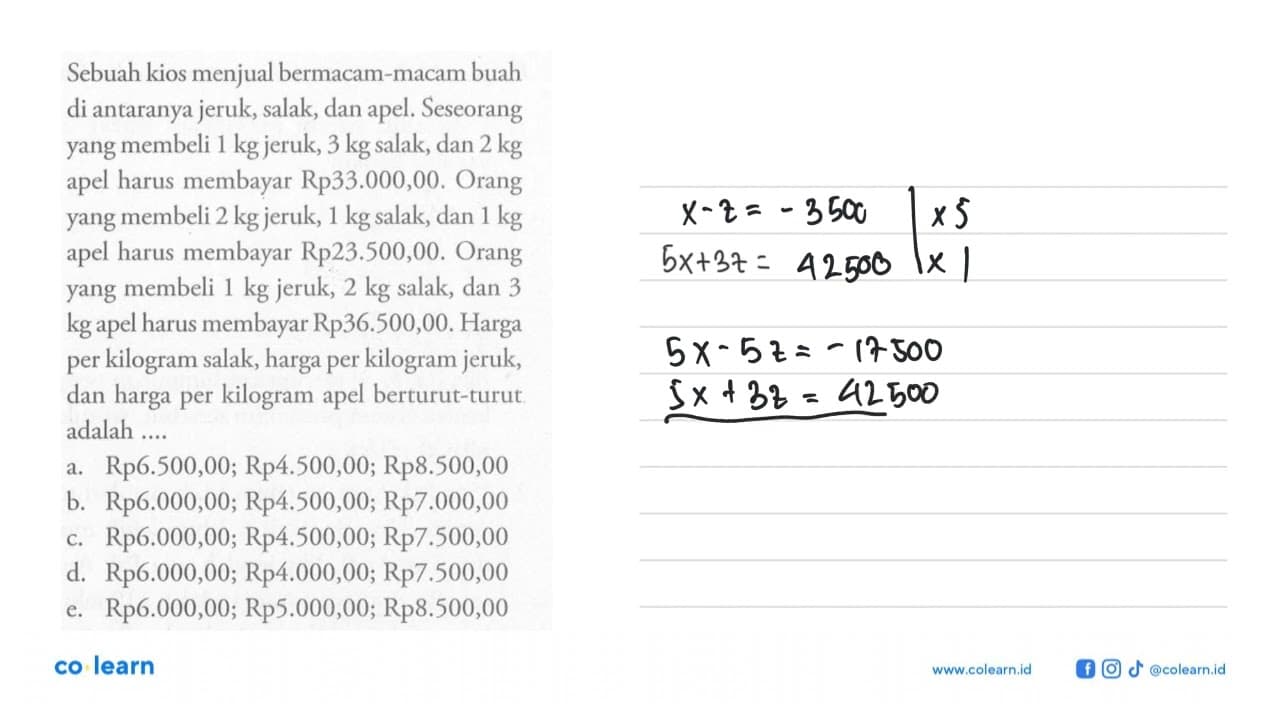 Sebuah kios menjual bermacam-macam buah
di antaranya jeruk, salak, dan apel. Seseorang
yang membeli 1 kg jeruk, 3 kg salak, dan 2 kg
apel harus membayar Rp33.000,00. Orang
yang membeli 2 kg jeruk, 1 kg salak, dan 1 kg
apel harus membayar Rp23.500,00. Orang
yang membeli 1 kg jeruk, 2 kg salak, dan 3
kg apel harus membayar Rp36.500,00. Harga
per kilogram salak, harga per kilogram jeruk,
dan harga per kilogram apel berturut-turut
adalah ....
a. Rp6.500,00; Rp4.500,00; Rp8.500,00
b. Rp6.000,00; Rp4.500,00; Rp7.000,00
c. Rp6.000,00; Rp4.500,00; Rp7.500,00
d. Rp6.000,00; Rp4.000,00; Rp7.500,00
e. Rp6.000,00; Rp5.000,00; Rp8.500,00
x - z = - 3500 | x 5
5x + 3z = 42500 | x 1
5x - 5z = - 17500
5x + 3z = 42500
co learn
www.colearn.id
@colearn.id